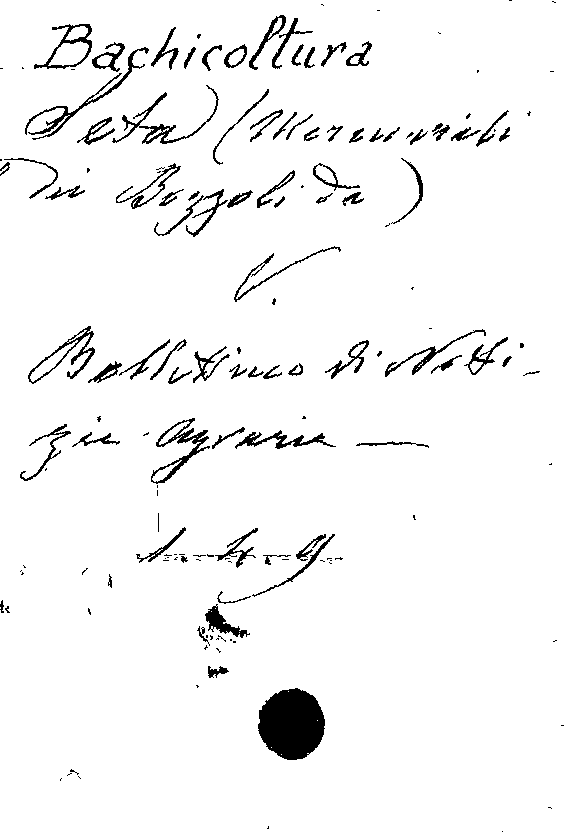 Bachicoltura
Seta (Mercuriali
dei Bozzoli da)
V.
Bollettino di Noti-
zie Agrarie —
1. 4. 9